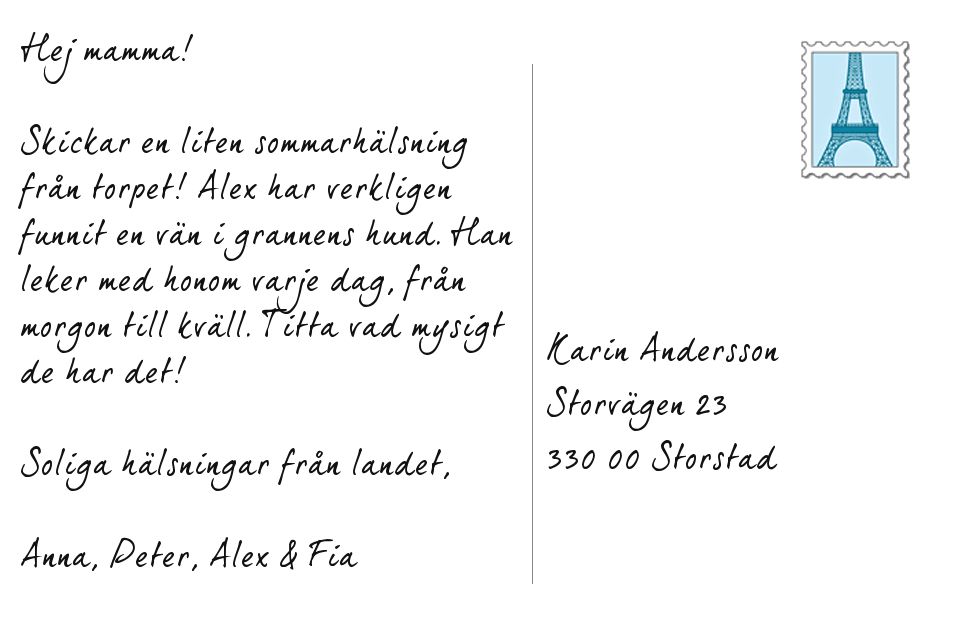 Hej mamma!
Skickar en liten sommarhälsning
från torpet! Alex har verkligen
funnit en vän i grannens hund. Han
leker med honom varje dag, från
morgon till kväll. Titta vad mysigt
de har det!
Soliga hälsningar från landet,
Anna, Peter, Alex & Fia
Karin Andersson
Storvägen 23
330 00 Storstad